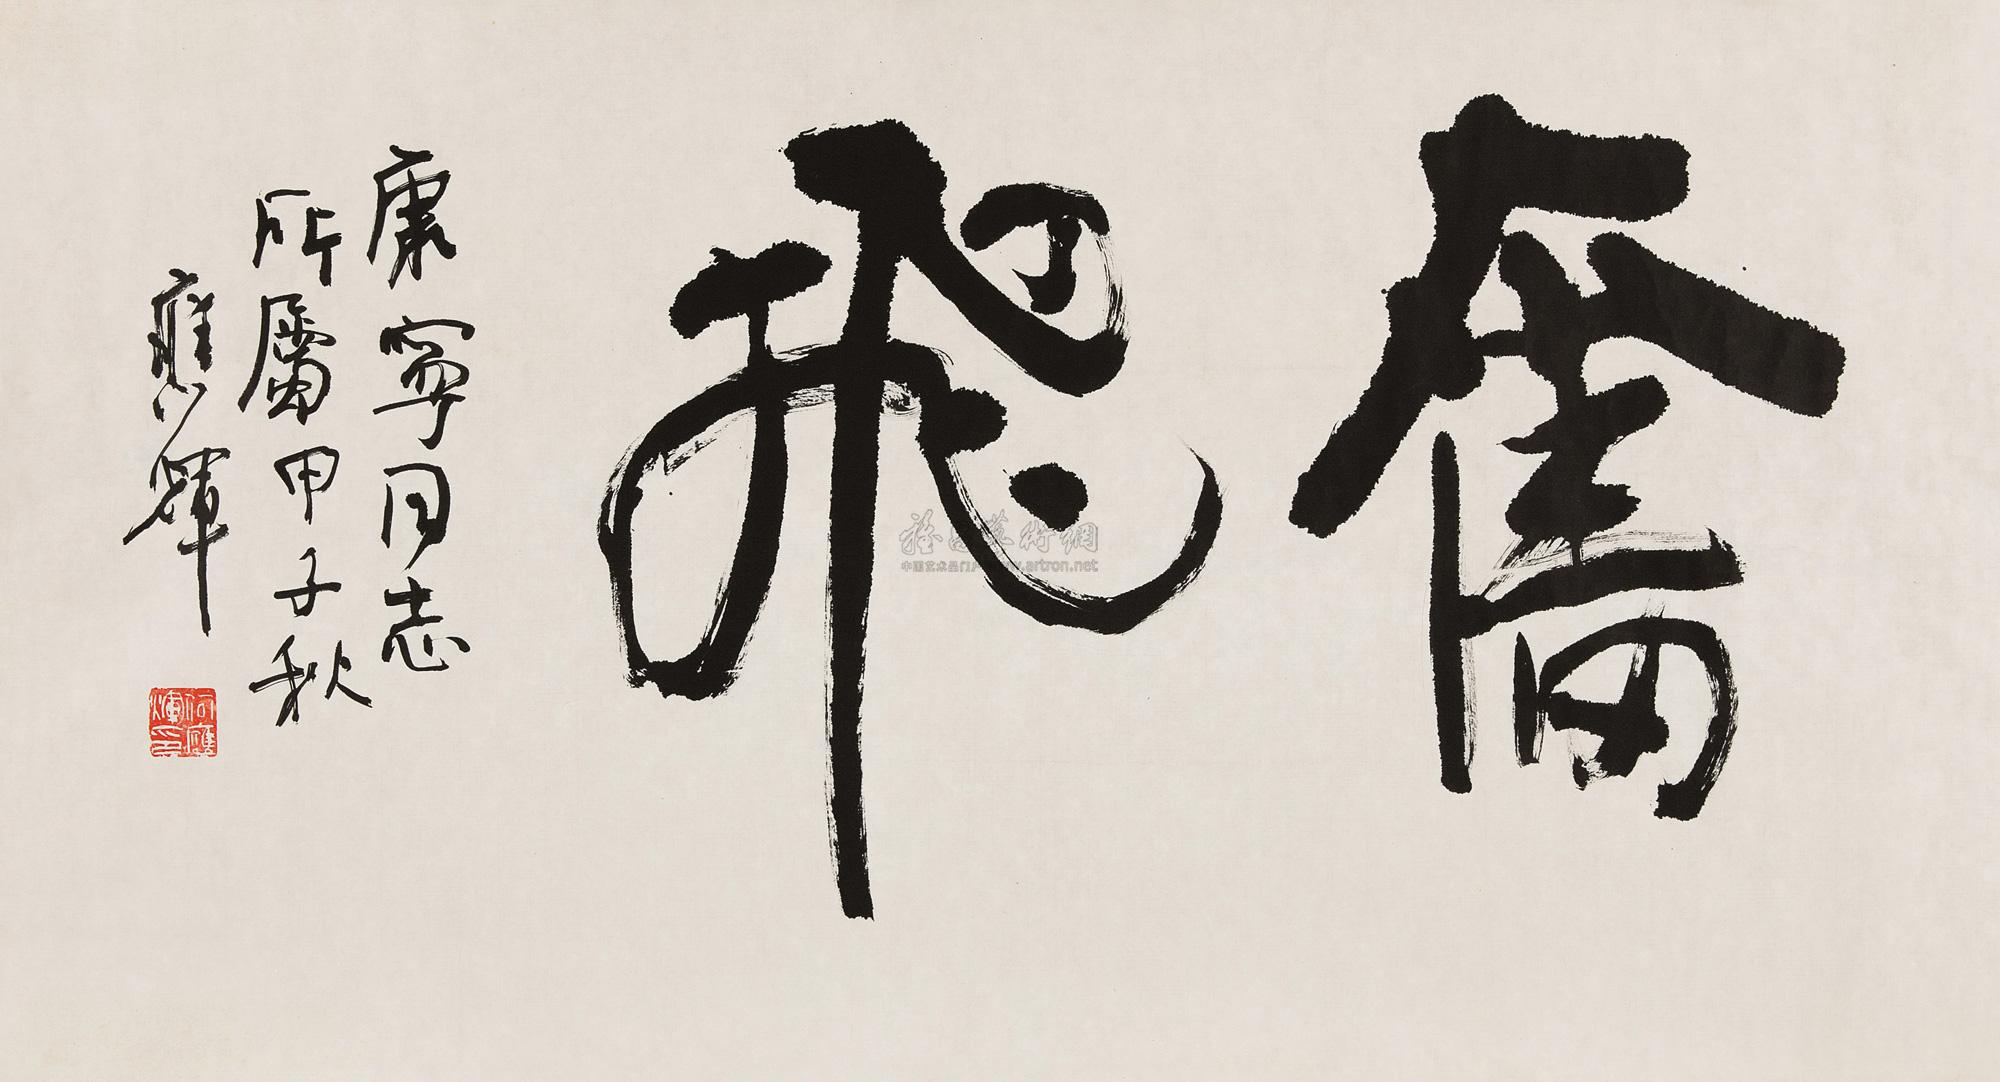 奮飛
康寧同志
所屬甲子秋
應煇
何應煇印
雅昌艺術網
中国艺术品门户 www.artron.net